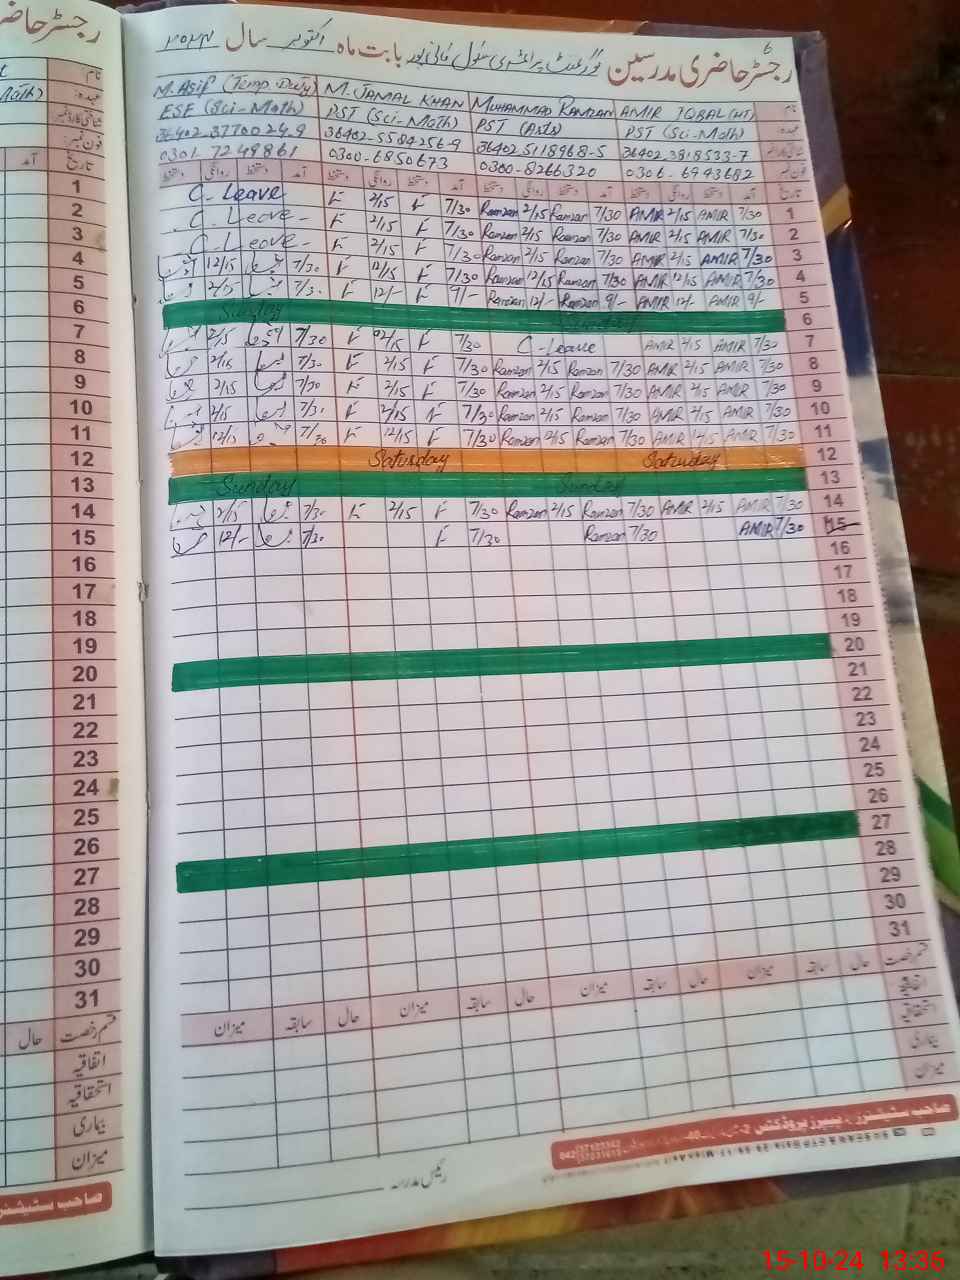 رجسٹر حاضری مدرسین گورنمنٹ پرائمری سکول بابت ماہ اکتوبر سال ۲۰۲۴
6
M. Asif (Temp. Duty) M. JAMAL KHAN MUHAMMAD RAMZAN AMIR IQBAL (HT) نام
ESE (Sci-Math) PST (Sci-Math) PST (Arts) PST (Sci-Math) عہدہ
36402-3770024-9 36402-5584256-9 36402-5118968-5 36402-3818533-7
0301-7249861 0300-6850673 0300-8266320 0306-6943682 فون نمبر
دستخط روانگی دستخط آمد دستخط روانگی دستخط آمد دستخط روانگی دستخط آمد دستخط روانگی دستخط آمد تاریخ
C-Leave 2/15 7/30 Ramzan 2/15 Ramzan 7/30 AMIR 2/15 AMIR 7/30 1
C-Leave- 2/15 7/30 Ramzan 2/15 Ramzan 7/30 AMIR 2/15 AMIR 7/30 2
C-Leave- 2/15 7/30 Ramzan 2/15 Ramzan 7/30 AMIR 2/15 AMIR 7/30 3
12/15 7/30 12/15 7/30 Ramzan 12/15 Ramzan 7/30 AMIR 12/15 AMIR 7/30 4
2/15 7/30 12/- 9/- Ramzan 12/- Ramzan 9/- AMIR 12/- AMIR 9/- 5
Sunday Sunday 6
2/15 7/30 2/15 7/30 C-Leave AMIR 2/15 AMIR 7/30 7
2/15 7/30 2/15 7/30 Ramzan 2/15 Ramzan 7/30 AMIR 2/15 AMIR 7/30 8
2/15 7/30 2/15 7/30 Ramzan 2/15 Ramzan 7/30 AMIR 2/15 AMIR 7/30 9
2/15 7/30 2/15 7/30 Ramzan 2/15 Ramzan 7/30 AMIR 2/15 AMIR 7/30 10
12/15 7/30 12/15 7/30 Ramzan 2/15 Ramzan 7/30 AMIR 12/15 AMIR 7/30 11
Saturday Saturday 12
Sunday Sunday 13
2/15 7/30 2/15 7/30 Ramzan 2/15 Ramzan 7/30 AMIR 2/15 AMIR 7/30 14
12/- 7/30 7/30 Ramzan 7/30 AMIR 7/30 15
16
17
18
19
20
21
22
23
24
25
26
27
28
29
30
31
میزان سابقہ حال میزان سابقہ حال میزان سابقہ حال میزان سابقہ حال قسم رخصت
اتفاقیہ
استحقاقیہ
بیماری
میزان
صاحب سٹیشنرز پیپرز پروڈکٹس
رئیس مدرسہ
رجسٹر حاضر
نام
عہدہ
شناختی کارڈ نمبر
فون نمبر
آمد تاریخ
1
2
3
4
5
6
7
8
9
10
11
12
13
14
15
16
17
18
19
20
21
22
23
24
25
26
27
28
29
30
31
حال قسم رخصت
اتفاقیہ
استحقاقیہ
بیماری
میزان
صاحب سٹیشنرز
15-10-24 13:36